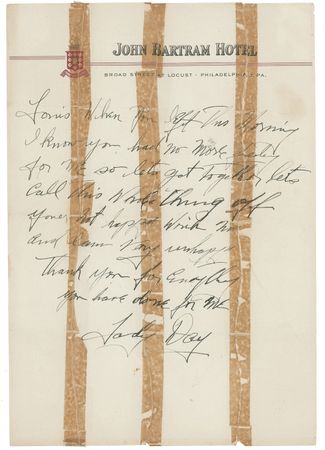 JOHN BARTRAM HOTEL
BROAD STREET AT LOCUST - PHILADELPHIA 7, PA.
Louis When You left This Morning
I know you had no more
for me so lets get together lets
call this Whole thing off
your not happy with me
and I am very unhappy
Thank you for Everything
you have done for me
Lady Day